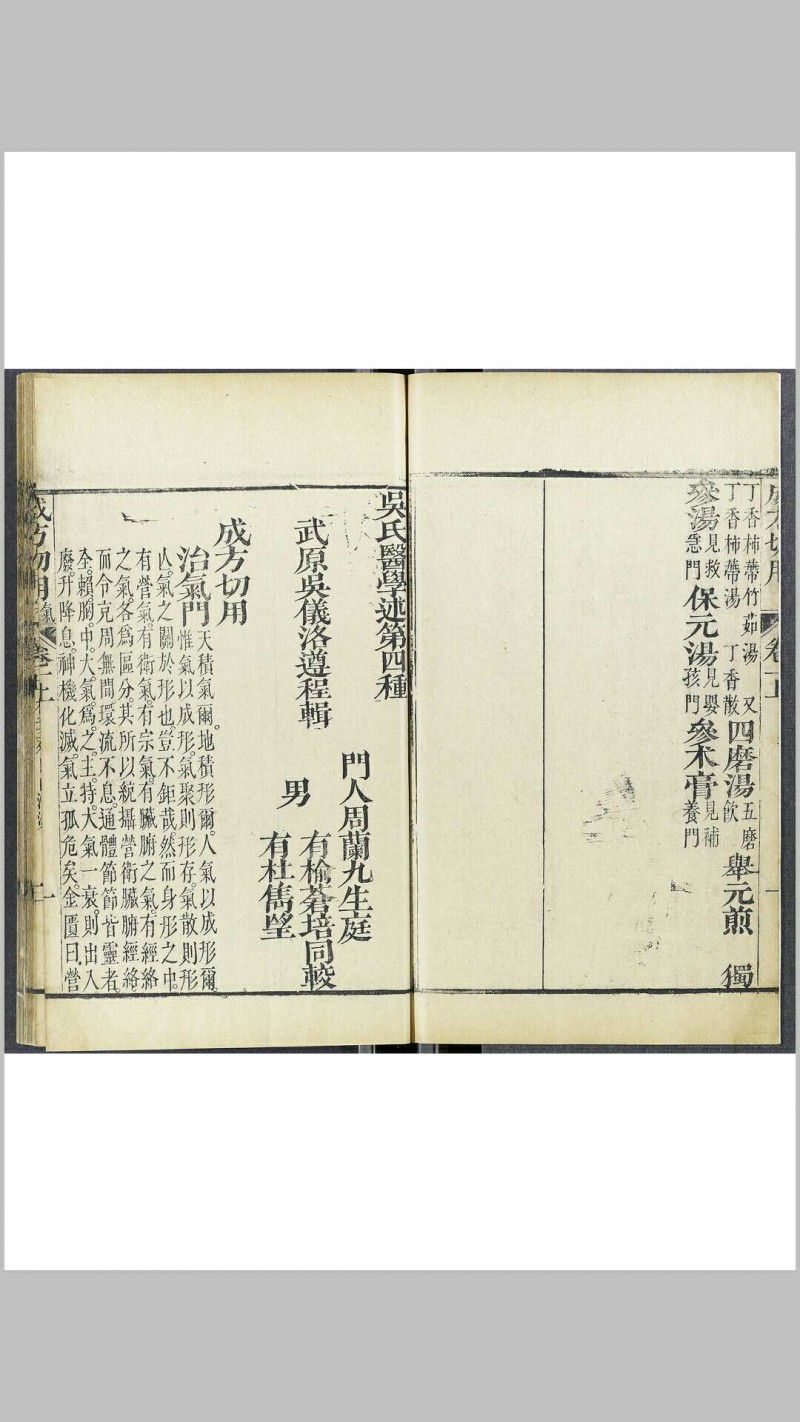 丁香柿蒂竹茹湯 又
丁香柿蒂湯 丁香散
四磨湯 五磨
飲
舉元煎 獨
參湯 見救
急門
保元湯 見嬰
孩門
參术膏 見補
養門
吳氏醫學述第四種
門人周蘭九生庭
武原吳儀洛遵程輯
男
有榆蒼培同較
有杜雋垩
成方切用
治氣門
天積氣爾。地積形爾。人氣以成形爾。
惟氣以成形。氣聚則形存。氣散則形
亾。氣之關於形也。豈不鉅哉。然而身形之中。
有營氣。有衛氣。有宗氣。有臟腑之氣。有經絡
之氣。各爲區分。其所以統攝營衛臟腑經絡。
而令充周無間。環流不息。通體節節皆靈者。
全賴胸中。大氣爲之主持。大氣一衰。則出入
廢。升降息。神機化滅。氣立孤危矣。金匱曰。營
成方切用
氣
卷一上
一
成方切用
卷一上